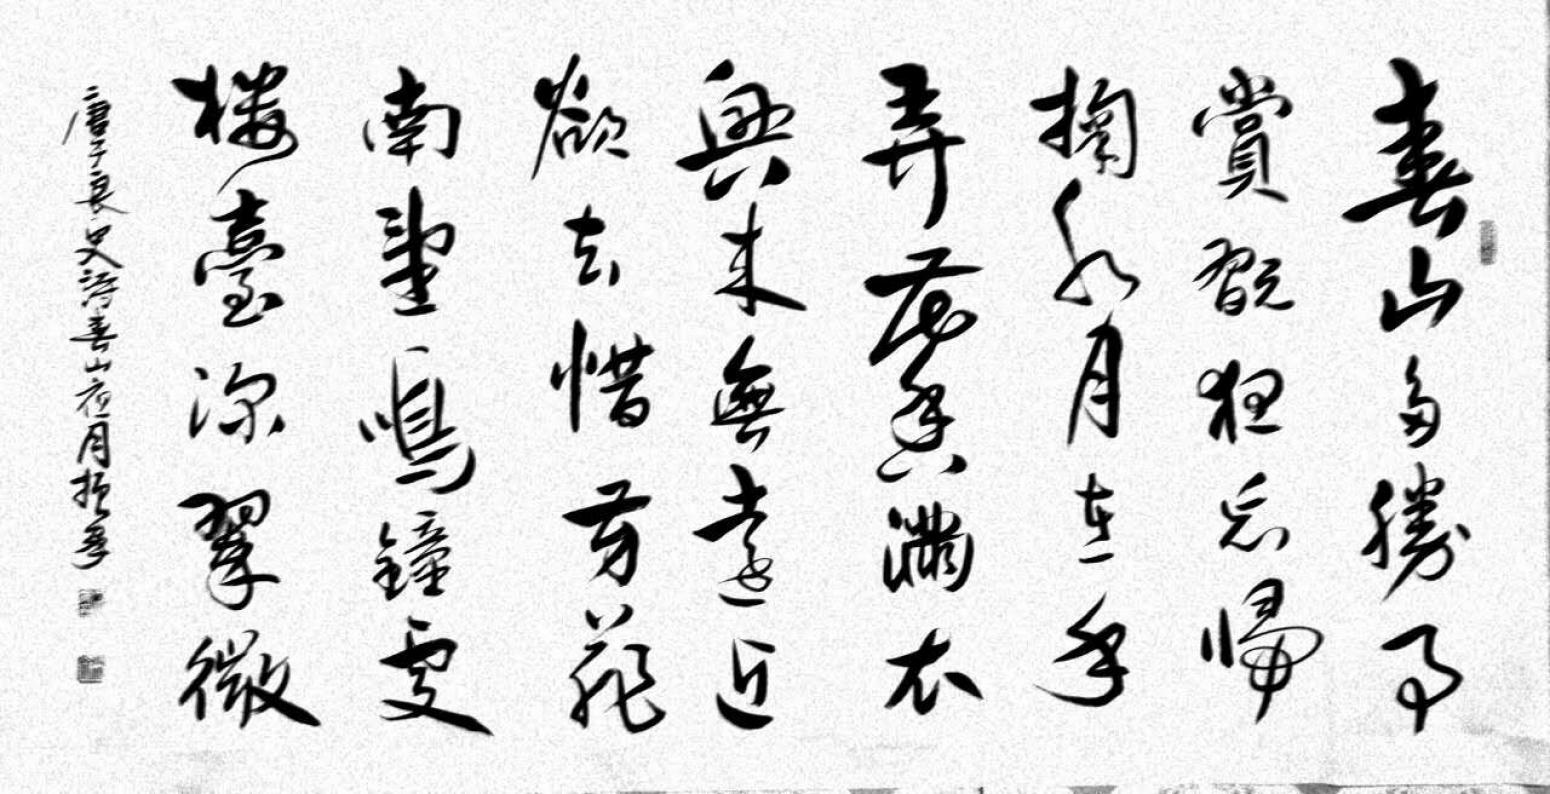 春山多勝事
賞翫夜忘歸
掬水月在手
弄花香滿衣
興來無遠近
欲去惜芳菲
南望鳴鐘處
樓臺深翠微
唐于良史詩春山夜月振